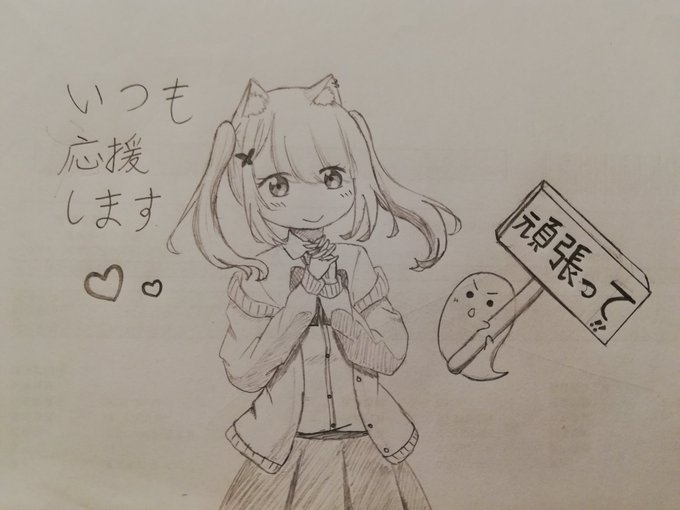 いつも
応援
します
頑張って!!